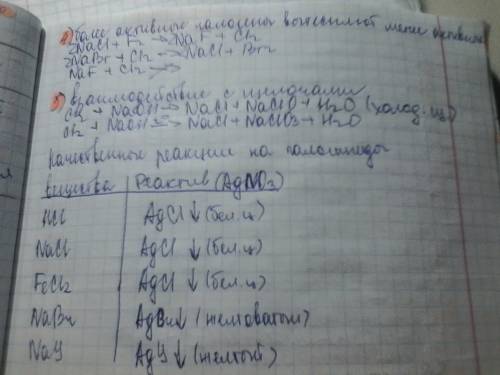 4) более активные галогены вытесняют менее активные
2NaCl + F2 → NaF + Cl2
2NaBr + Cl2 → NaCl + Br2
NaF + Cl2 ↛
5) взаимодействие с щелочами
Cl2 + NaOH → NaCl + NaClO + H2O (холод.
Cl2 + NaOH → NaCl + NaClO3 + H2O
Качественные реакции на галогениды
вещества | Реактив (AgNO3)
HCl | AgCl ↓ (бел.ц)
NaCl | AgCl ↓ (бел.ц)
FeCl2 | AgCl ↓ (бел.ц)
NaBr | AgBr ↓ (желтоватый)
NaY | AgY ↓ (желтый)